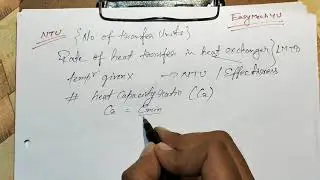 NTU {No of transfer Units} EasyMechYU
Rate of heat transfer in heat exchanger} LMTD
tempr given X → NTU / Effectiveness
# heat Capacity ratio (Ca)
Ca = Cmin